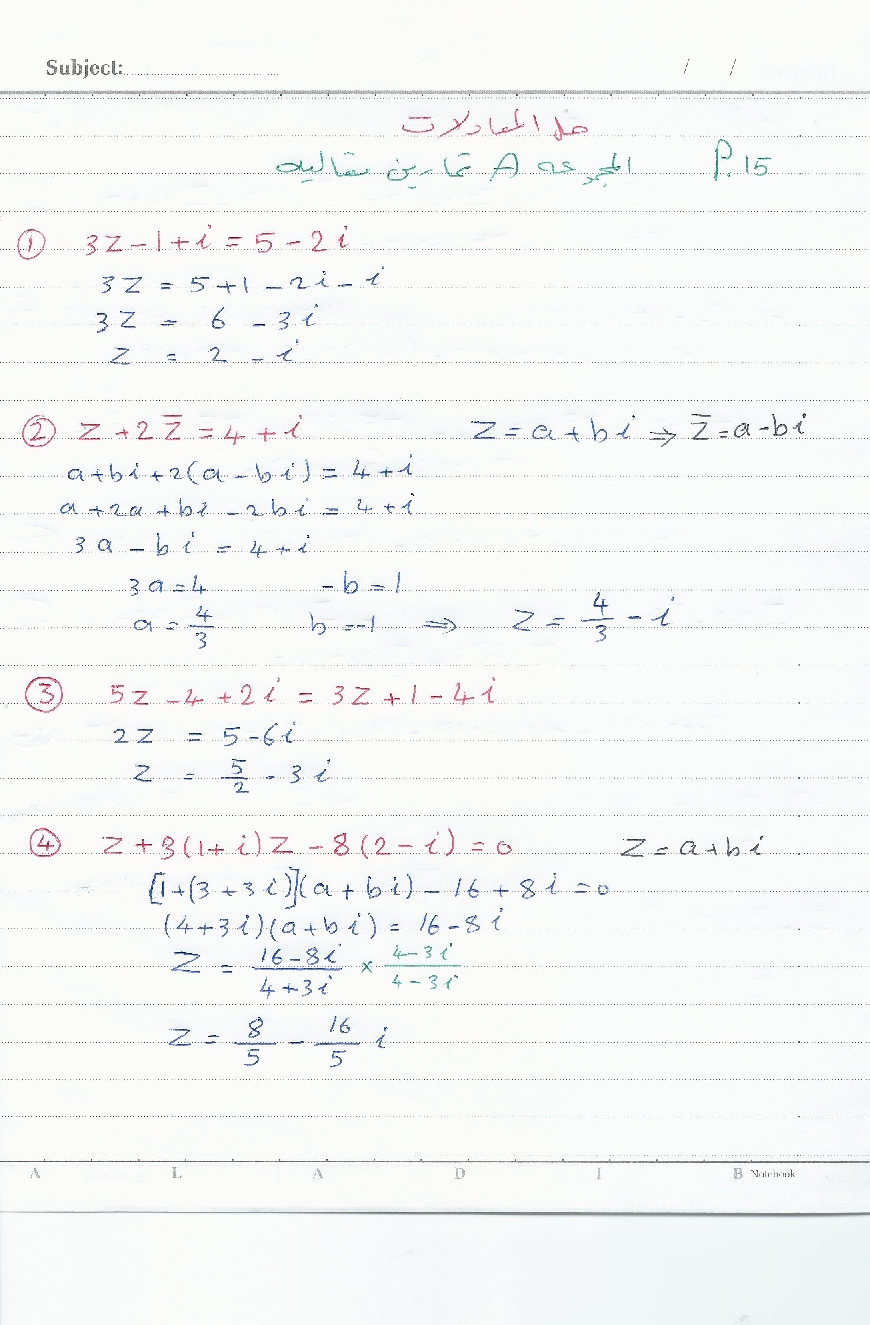 Subject: / /
حل المعادلات
المجموعه A تمارين مقاليه P.15
① 3z-1+i=5-2i
3z = 5+1-2i-i
3z = 6 -3i
z = 2 -i
② z+2z̄=4+i z=a+bi⇒z̄=a-bi
a+bi+2(a-bi)=4+i
a+2a+bi-2bi=4+i
3a-bi=4+i
3a=4 -b=1
a=4/3 b=-1 ⇒ z=4/3-i
③ 5z-4+2i=3z+1-4i
2z = 5-6i
z = 5/2-3i
④ z+3(1+i)z-8(2-i)=0 z=a+bi
[1+(3+3i)](a+bi)-16+8i=0
(4+3i)(a+bi)=16-8i
z = (16-8i)/(4+3i) × (4-3i)/(4-3i)
z = 8/5 - 16/5 i
A L A D I B Notebook